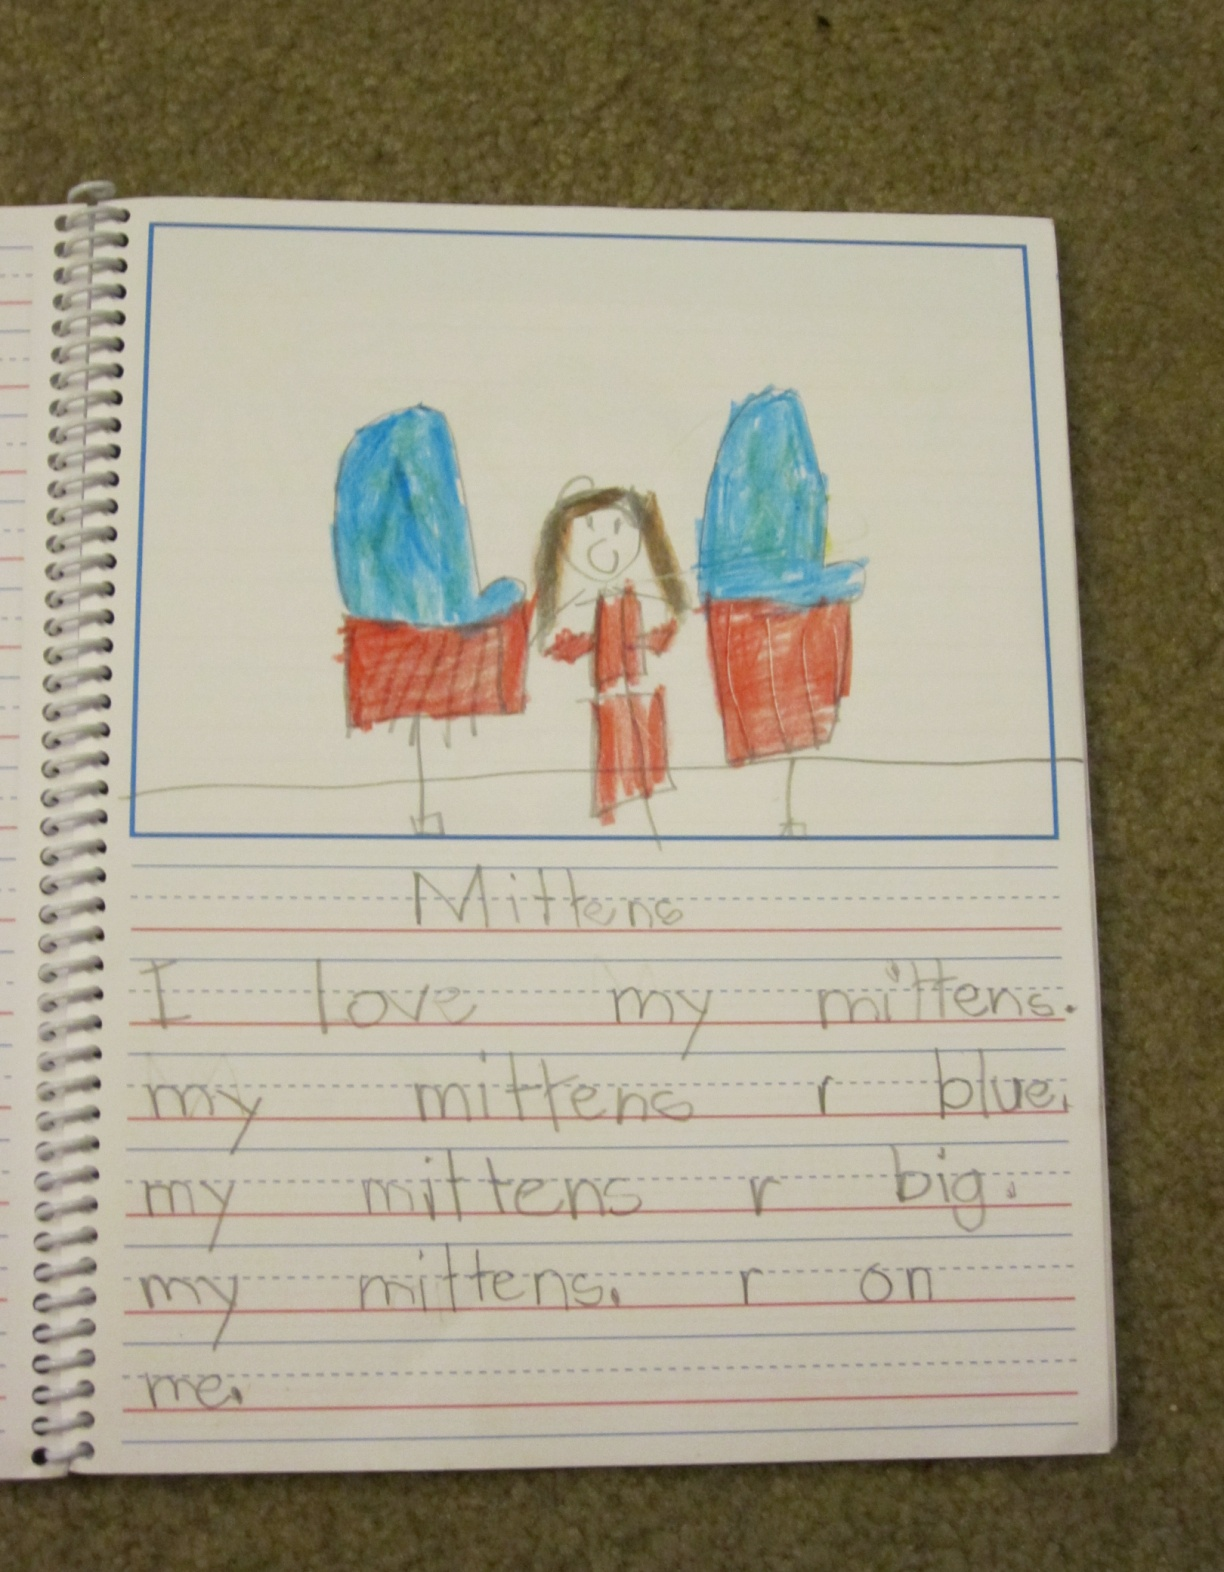 Mittens
I love my mittens.
my mittens r blue.
my mittens r big.
my mittens. r on
me.